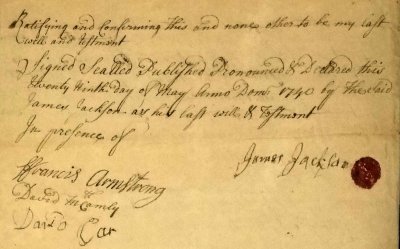 Ratifying and Confirming this and none other to be my last
will and testment
Signed Sealled Published Pronounced & Declared this
twenty Ninth day of May Anno Dom 1740 by the said
James Jackson as his last will & testment
In presence of
Francis Armstrong
James Jackson
David
David